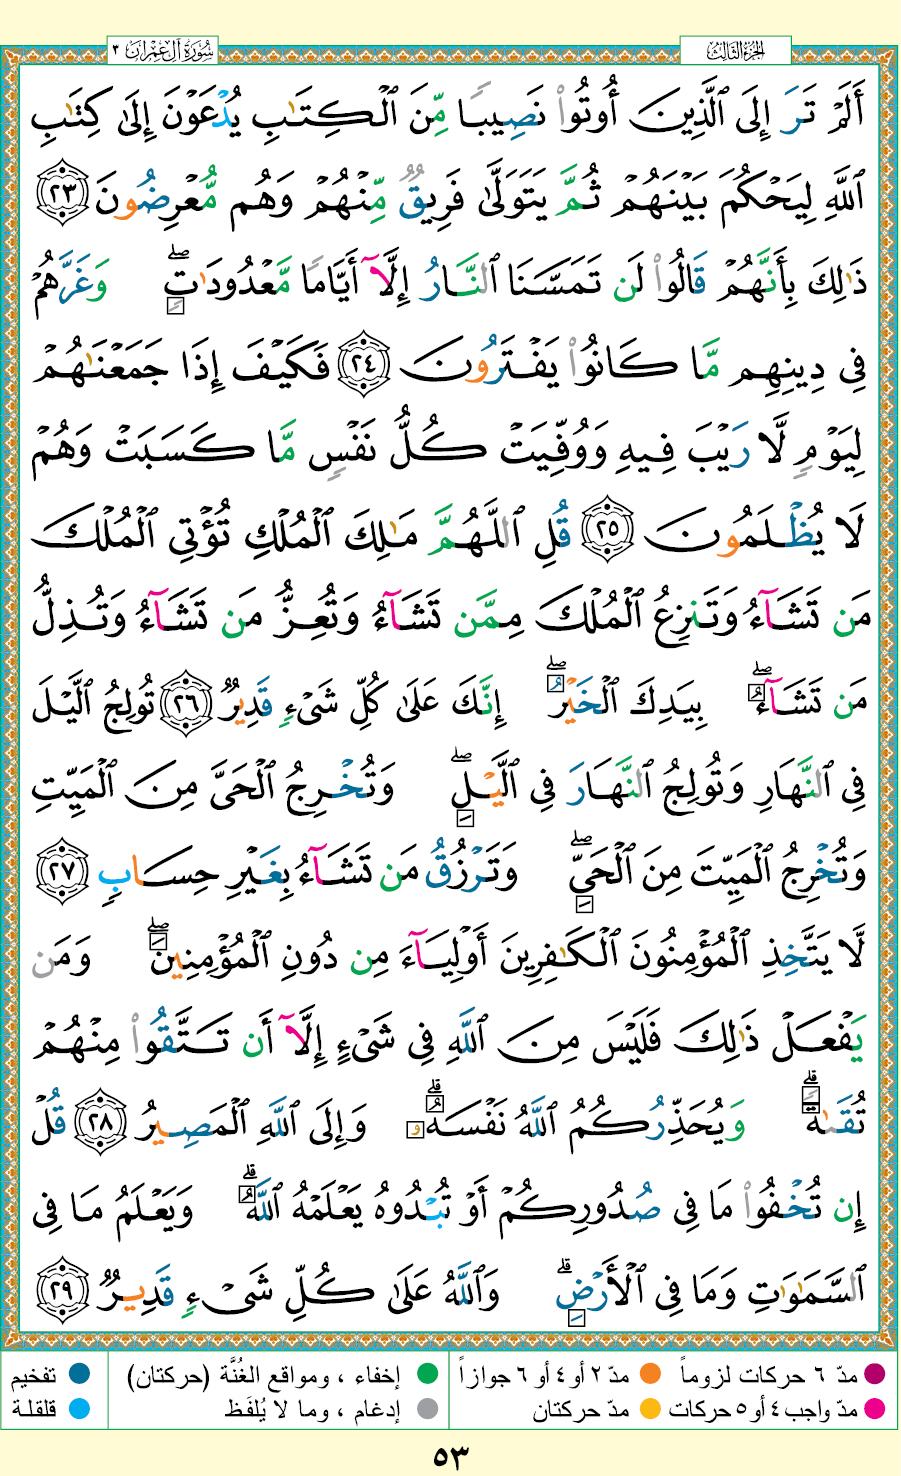 سُورَةُ آلِ عِمْرَانَ ٣
الجُزْءُ الثَّالِثُ
أَلَمْ تَرَ إِلَى ٱلَّذِينَ أُوتُوا۟ نَصِيبًا مِّنَ ٱلْكِتَـٰبِ يُدْعَوْنَ إِلَىٰ كِتَـٰبِ
ٱللَّهِ لِيَحْكُمَ بَيْنَهُمْ ثُمَّ يَتَوَلَّىٰ فَرِيقٌ مِّنْهُمْ وَهُم مُّعْرِضُونَ ٢٣
ذَٰلِكَ بِأَنَّهُمْ قَالُوا۟ لَن تَمَسَّنَا ٱلنَّارُ إِلَّآ أَيَّامًا مَّعْدُودَٰتٍ ۖ وَغَرَّهُمْ
فِى دِينِهِم مَّا كَانُوا۟ يَفْتَرُونَ ٢٤ فَكَيْفَ إِذَا جَمَعْنَـٰهُمْ
لِيَوْمٍ لَّا رَيْبَ فِيهِ وَوُفِّيَتْ كُلُّ نَفْسٍ مَّا كَسَبَتْ وَهُمْ
لَا يُظْلَمُونَ ٢٥ قُلِ ٱللَّهُمَّ مَـٰلِكَ ٱلْمُلْكِ تُؤْتِى ٱلْمُلْكَ
مَن تَشَآءُ وَتَنزِعُ ٱلْمُلْكَ مِمَّن تَشَآءُ وَتُعِزُّ مَن تَشَآءُ وَتُذِلُّ
مَن تَشَآءُ ۖ بِيَدِكَ ٱلْخَيْرُ ۖ إِنَّكَ عَلَىٰ كُلِّ شَىْءٍ قَدِيرٌ ٢٦ تُولِجُ ٱلَّيْلَ
فِى ٱلنَّهَارِ وَتُولِجُ ٱلنَّهَارَ فِى ٱلَّيْلِ ۖ وَتُخْرِجُ ٱلْحَىَّ مِنَ ٱلْمَيِّتِ
وَتُخْرِجُ ٱلْمَيِّتَ مِنَ ٱلْحَىِّ ۖ وَتَرْزُقُ مَن تَشَآءُ بِغَيْرِ حِسَابٍ ٢٧
لَّا يَتَّخِذِ ٱلْمُؤْمِنُونَ ٱلْكَـٰفِرِينَ أَوْلِيَآءَ مِن دُونِ ٱلْمُؤْمِنِينَ ۖ وَمَن
يَفْعَلْ ذَٰلِكَ فَلَيْسَ مِنَ ٱللَّهِ فِى شَىْءٍ إِلَّآ أَن تَتَّقُوا۟ مِنْهُمْ
تُقَىٰةً ۗ وَيُحَذِّرُكُمُ ٱللَّهُ نَفْسَهُۥ ۗ وَإِلَى ٱللَّهِ ٱلْمَصِيرُ ٢٨ قُلْ
إِن تُخْفُوا۟ مَا فِى صُدُورِكُمْ أَوْ تُبْدُوهُ يَعْلَمْهُ ٱللَّهُ ۗ وَيَعْلَمُ مَا فِى
ٱلسَّمَـٰوَٰتِ وَمَا فِى ٱلْأَرْضِ ۗ وَٱللَّهُ عَلَىٰ كُلِّ شَىْءٍ قَدِيرٌ ٢٩
مدّ ٦ حركات لزوماً مدّ ٢ أو ٤ أو ٦ جوازاً إخفاء ، ومواقع الغُنَّة (حركتان) تفخيم
مدّ واجب ٤ أو ٥ حركات مدّ حركتان إدغام ، وما لا يُلفَظ قلقلة
٥٣